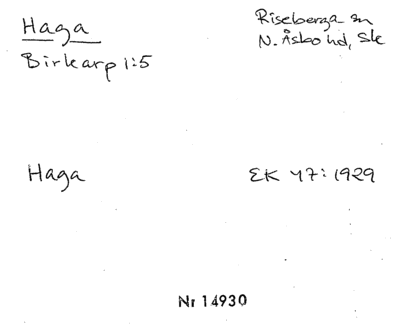 Haga
Riseberga sn
Birkarp 1:5
N. Åsbo hd, Sk
Haga
EK 47: 1929
Nr 14930